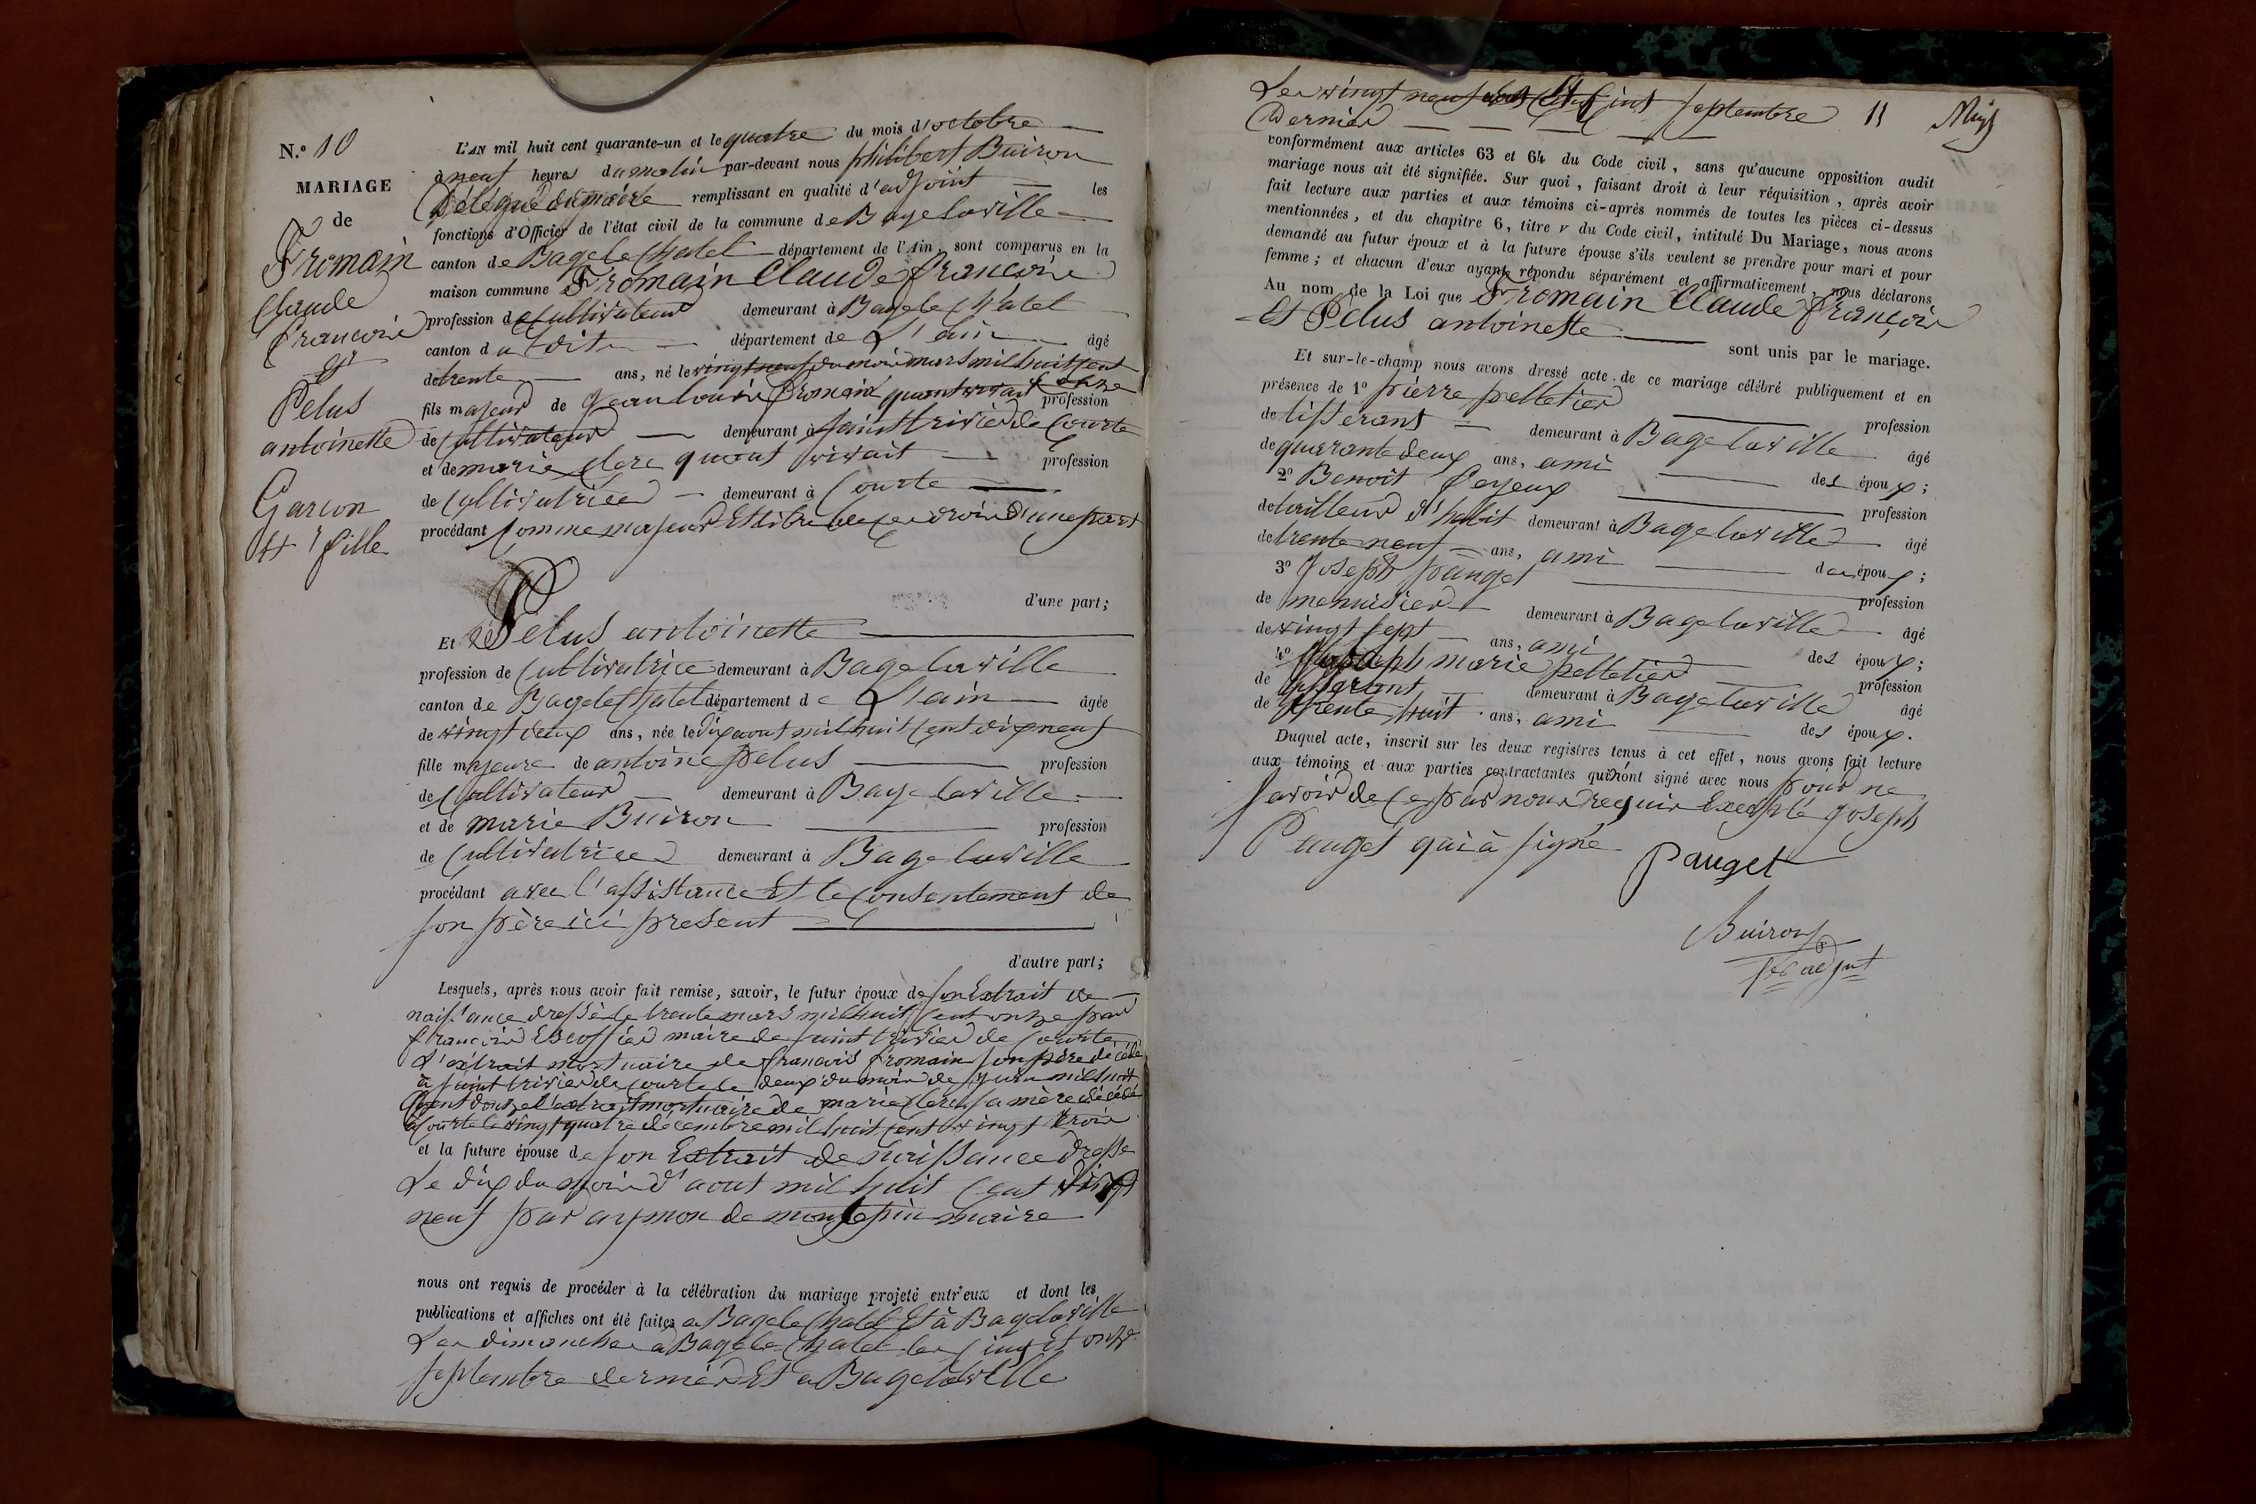 N.o 10
MARIAGE
de
Fromain
Claude
françois
et
Pelus
antoinette
Garcon
et fille
L'AN mil huit cent quarante-un et le quatre du mois d'octobre
à neuf heures du matin par-devant nous philibert Buiron
Délégué du maire remplissant en qualité d'adjoint les
fonctions d'Officier de l'état civil de la commune de Bage la ville
canton de Bage le Chatel département de l'Ain, sont comparus en la
maison commune Fromain Claude françois
profession de Cultivateur demeurant à Bage le Chatel
canton du dit département de L'ain âgé
de trente ans, né le vingt neuf du mois mars mil huit cent onze
fils majeur de Jean louis fromain quant vivait profession
de Cultivateur demeurant à saint trivier de Courte
et de marie clere quant vivait profession
de Cultivatrice demeurant à Courte
procédant Comme majeur Et libre de ses droits d'une part
d'une part;
Et Pelus antoinette
profession de Cultivatrice demeurant à Bage la ville
canton de Bage le Chatel département de L'ain âgée
de vingt deux ans, née le dix aout mil huit Cent dix neuf
fille majeure de antoine pelus profession
de Cultivateur demeurant à Bage la ville
et de marie Buiron profession
de Cultivatrice demeurant à Bage la ville
procédant avec l'assistance Et le Consentement de
son père ici present
d'autre part;
Lesquels, après nous avoir fait remise, savoir, le futur époux de son Extrait de
naissance dressé le trente mars mil huit Cent onze par
françois Escoffier maire de saint trivier de Courte,
L'extrait mortuaire de francois fromain son père décédé
à saint trivier de Courte le deux du mois de juin mil huit
Cent douze L'extrait mortuaire de marie clere sa mère décédé
a Courte le vingt quatre décembre mil huit cent vingt trois
et la future épouse de son Extrait de naissance dressé
Le dix du mois d'aout mil huit Cent dix
neuf par aymon de montepin maire
nous ont requis de procéder à la célébration du mariage projeté entr'eux et dont les
publications et affiches ont été faites a Bage le Chatel Et à Bage la ville
Les dimanches a Bage le Chatel les Cinq Et onze
septembre dernier Et a Bage la ville
Les vingt neuf septembre 11
Dernier
conformément aux articles 63 et 64 du Code civil, sans qu'aucune opposition audit
mariage nous ait été signifiée. Sur quoi, faisant droit à leur réquisition, après avoir
fait lecture aux parties et aux témoins ci-après nommés de toutes les pièces ci-dessus
mentionnées, et du chapitre 6, titre v du Code civil, intitulé Du Mariage, nous avons
demandé au futur époux et à la future épouse s'ils veulent se prendre pour mari et pour
femme; et chacun d'eux ayant répondu séparément et affirmativement, nous déclarons
Au nom de la Loi que Fromain Claude françois
Et Pelus antoinette sont unis par le mariage.
Et sur-le-champ nous avons dressé acte de ce mariage célébré publiquement et en
présence de 1o pierre pelletier profession
de tisserant demeurant à Bage la ville âgé
de quarante deux ans, ami des époux;
2o Benoit profession
de tailleur d'habit demeurant à Bage la ville âgé
de trente neuf ans, ami des époux;
3o Joseph pauget profession
de menuisier demeurant à Bage la ville âgé
de vingt sept ans, ami des époux;
4o Joseph marie pelletier profession
de tisserant demeurant à Bage la ville âgé
de trente huit ans, ami des époux.
Duquel acte, inscrit sur les deux registres tenus à cet effet, nous avons fait lecture
aux témoins et aux parties contractantes qui n'ont signé avec nous pour ne
savoir de Ce par nous requis Excepté Joseph
Pauget qui à signé
Pauget
Buiron